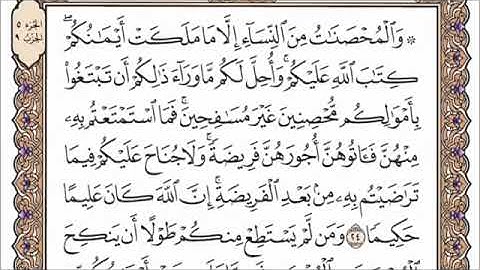 الجزء ٥
الحزب ٩
۞ وَٱلْمُحْصَنَٰتُ مِنَ ٱلنِّسَآءِ إِلَّا مَا مَلَكَتْ أَيْمَٰنُكُمْ ۖ
كِتَٰبَ ٱللَّهِ عَلَيْكُمْ ۚ وَأُحِلَّ لَكُم مَّا وَرَآءَ ذَٰلِكُمْ أَن تَبْتَغُوا۟
بِأَمْوَٰلِكُم مُّحْصِنِينَ غَيْرَ مُسَٰفِحِينَ ۚ فَمَا ٱسْتَمْتَعْتُم بِهِۦ
مِنْهُنَّ فَـَٔاتُوهُنَّ أُجُورَهُنَّ فَرِيضَةً ۚ وَلَا جُنَاحَ عَلَيْكُمْ فِيمَا
تَرَٰضَيْتُم بِهِۦ مِنۢ بَعْدِ ٱلْفَرِيضَةِ ۚ إِنَّ ٱللَّهَ كَانَ عَلِيمًا
حَكِيمًا ٢٤ وَمَن لَّمْ يَسْتَطِعْ مِنكُمْ طَوْلًا أَن يَنكِحَ